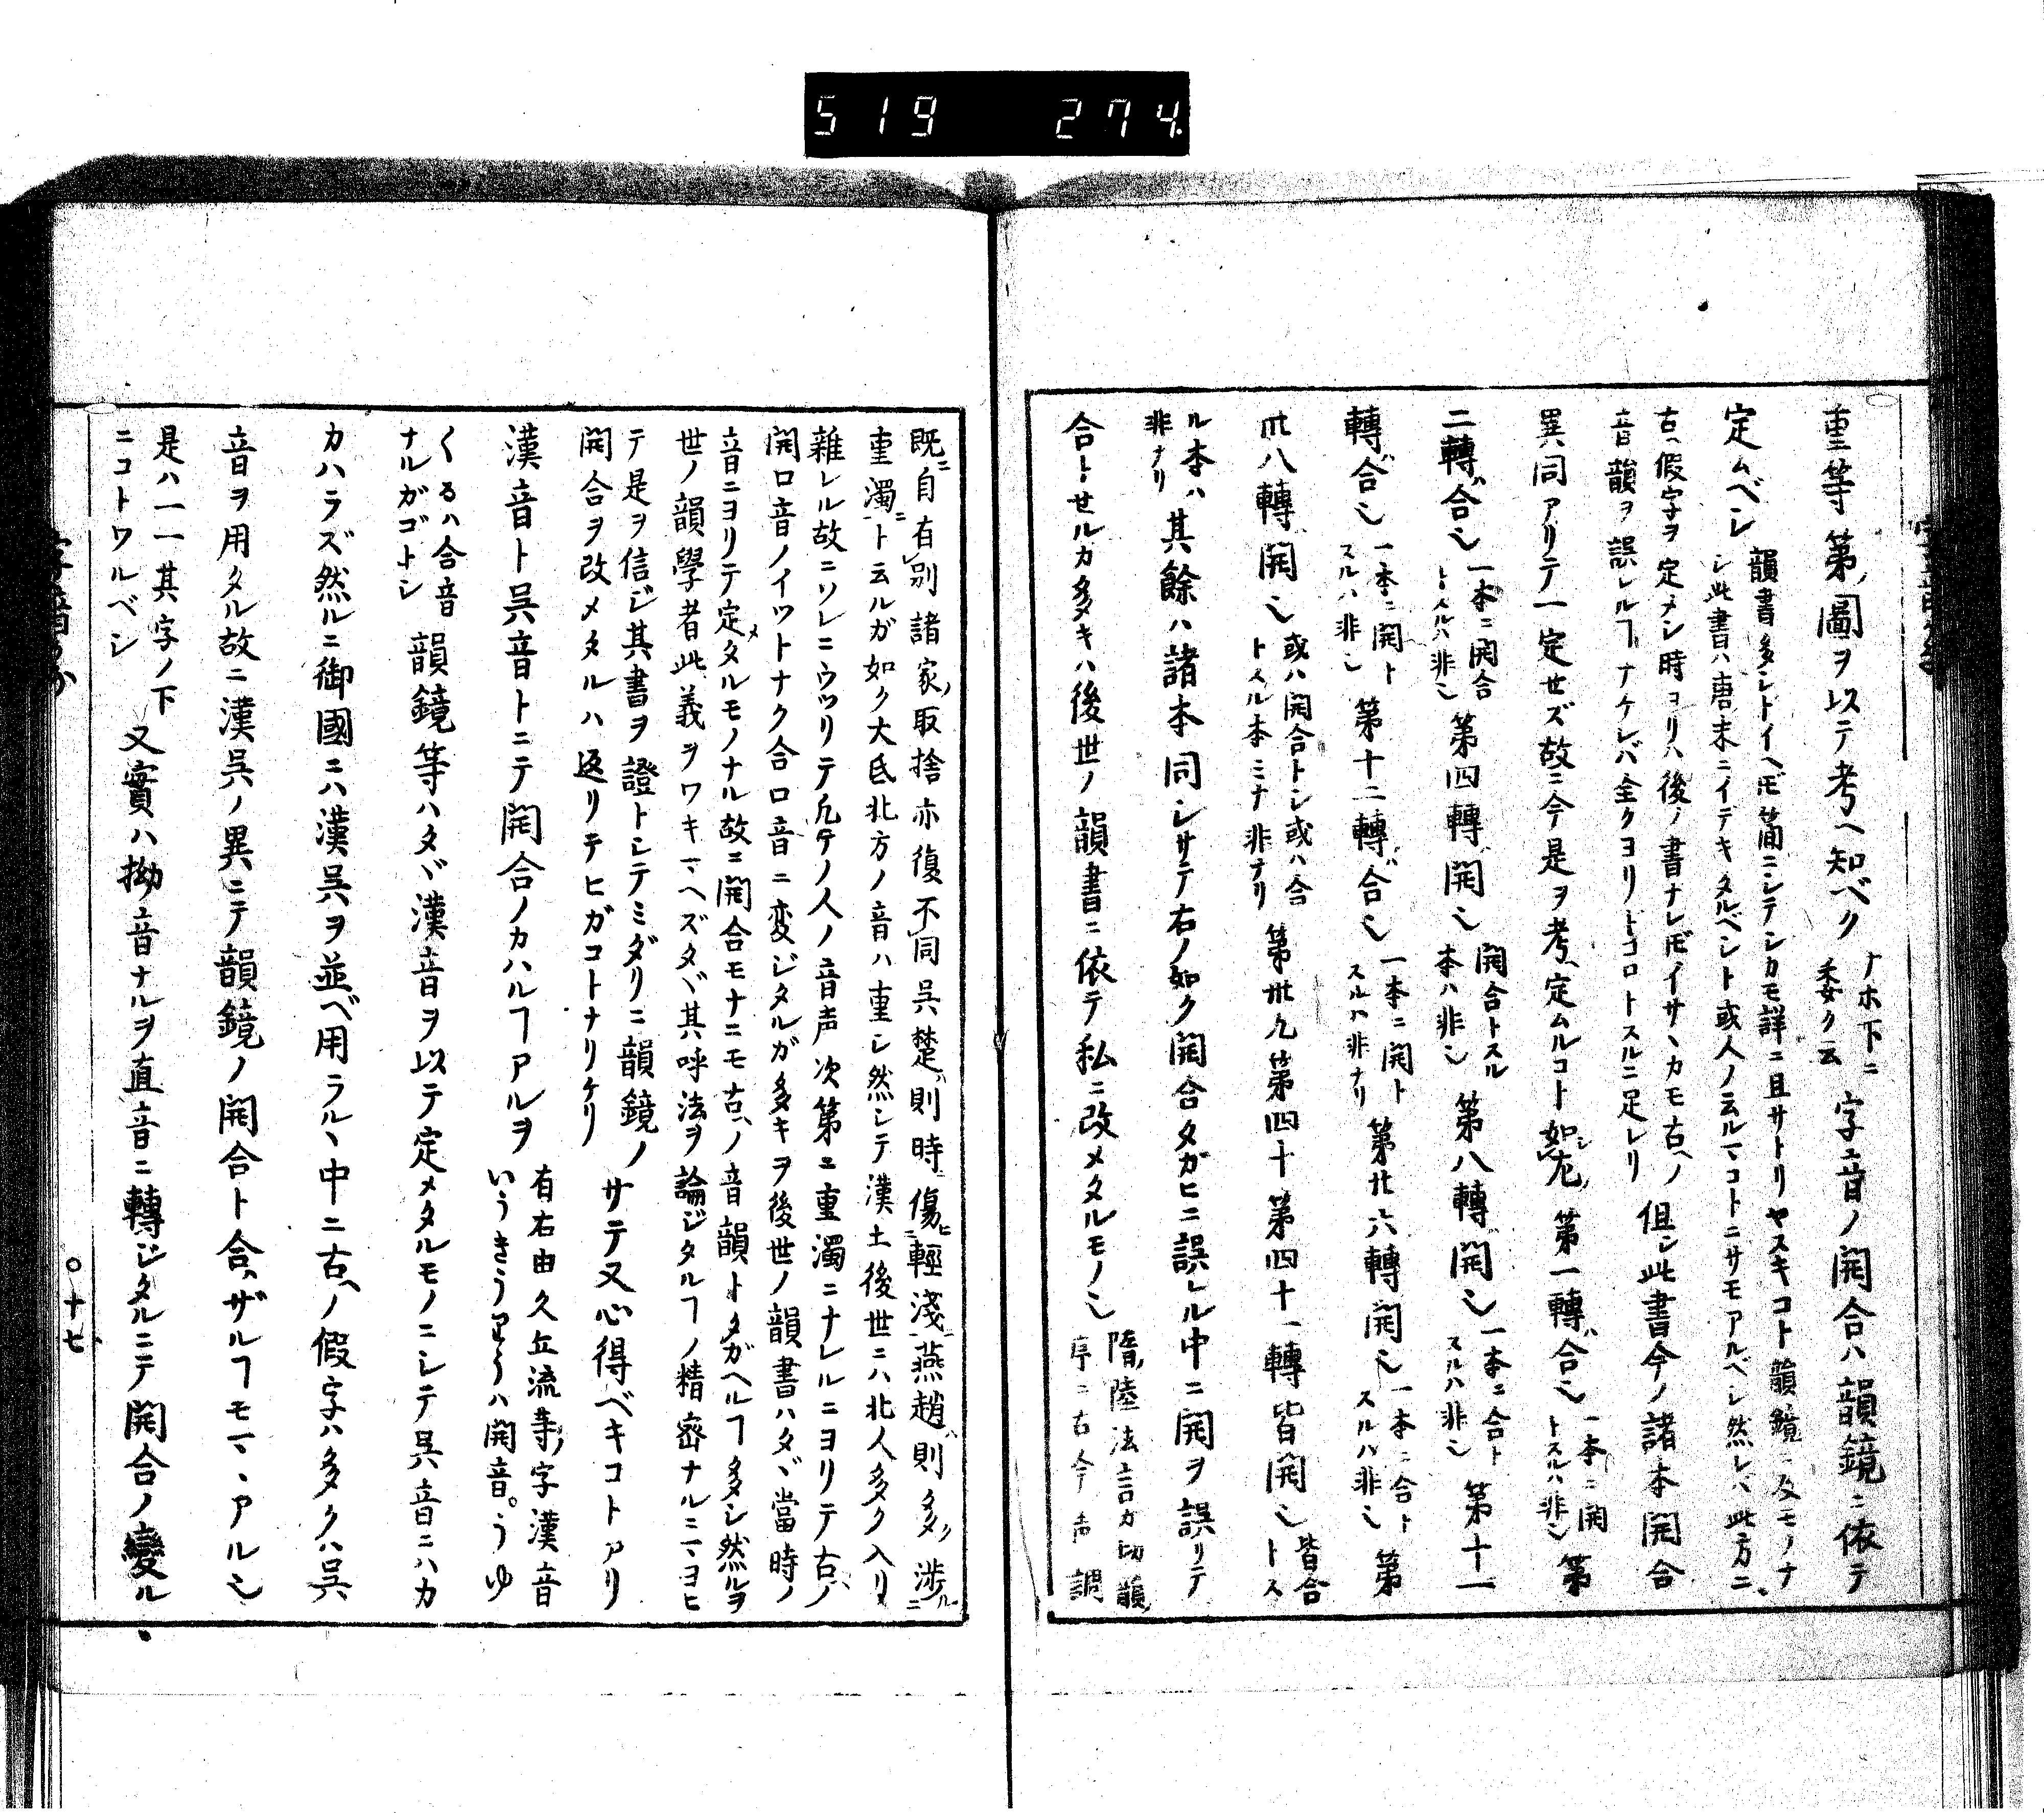 519 274.
重等第ノ圖ヲ以テ考ヘ知ベク
ナホ下ニ
委ク云
字音ノ開合ハ韻鏡ニ依テ
定ムベシ
韻書多シトイヘ𪜈簡ニシテシカモ詳ニ且サトリヤスキコト韻鏡ニ及モノナ
シ此書ハ唐末ニイデキタルベシト或人ノ云ルマコトニサモアルベシ然レバ此方ニ
古ヘ假字ヲ定メシ時ヨリハ後ノ書ナレ𪜈イサヽカモ古ヘノ
音韻ヲ誤レルヿナケレバ全クヨリトコロトスルニ足レリ
但シ此書今ノ諸本開合
異同アリテ一定セズ故ニ今是ヲ考ヘ定ムルコト如左第一轉ハ合也
一本ニ開
トスルハ非也
第
二轉ハ合也
一本ニ開合
トスルハ非也
第四轉ハ開也
開合トスル
本ハ非也
第八轉ハ開也
一本ニ合ト
スルハ非也
第十一
轉ハ合也
一本ニ開ト
スルハ非也
第十二轉ハ合也
一本ニ開ト
スルハ非ナリ
第廿六轉開也
一本ニ合ト
スルハ非也
第
廿八轉ハ開也
或ハ開合トシ或ハ合
トスル本ミナ非ナリ
第卅九第四十第四十一轉皆開也
皆合
トス
ル本ハ
非ナリ
其餘ハ諸本同シサテ右ノ如ク開合タガヒニ誤レル中ニ開ヲ誤リテ
合トセルカ多キハ後世ノ韻書ニ依テ私ニ改メタルモノ也
隋ノ陸法言カ切韻ノ
序ニ古今声調
既ニ自有別諸家ノ取捨亦復不同呉楚ハ則時ニ傷ヒ輕淺ニ燕趙ハ則多ク渉ル
重濁ニト云ルガ如ク大氐北方ノ音ハ重シ然シテ漢土後世ニハ北人多ク入リ
雜レル故ニソレニウツリテ凡テノ人ノ音声次第ニ重濁ニナレルニヨリテ古ヘノ
開口音ノイツトナク合口音ニ変ジタルガ多キヲ後世ノ韻書ハタヾ當時ノ
音ニヨリテ定メタルモノナル故ニ開合モナニモ古ヘノ音韻トタガヘルヿ多シ然ルヲ
世ノ韻學者此義ヲワキマヘズタヾ其呼法ヲ論ジタルヿノ精密ナルニマヨヒ
テ是ヲ信ジ其書ヲ證トシテミダリニ韻鏡ノ
開合ヲ改メタルハ返リテヒガコトナリケリ
サテ又心得ベキコトアリ
漢音ト呉音トニテ開合ノカハルヿアルヲ
有右由久丘流等ノ字漢音
いうきうりうハ開音。うゆ
くるハ合音
ナルガゴトシ
韻鏡等ハタヾ漢音ヲ以テ定メタルモノニシテ呉音ニハカ
カハラズ然ルニ御國ニハ漢呉ヲ並ベ用ラルヽ中ニ古ヘノ假字ハ多クハ呉
音ヲ用タル故ニ漢呉ノ異ニテ韻鏡ノ開合ト合ハザルヿモマヽアル也
是ハ一一其字ノ下
ニコトワルベシ
又實ハ拗音ナルヲ直音ニ轉ジタルニテ開合ノ變ル
〇十七